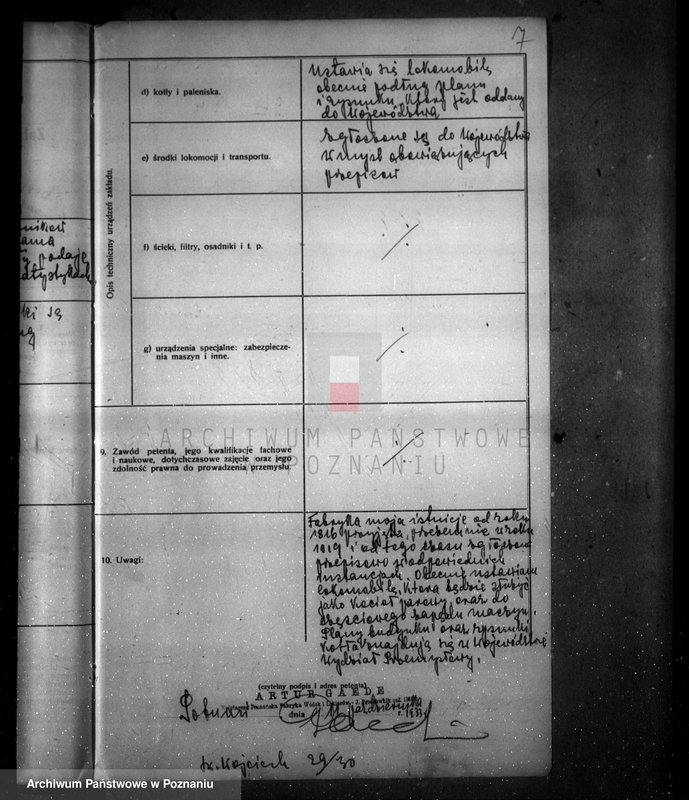 7
d) kotły i paleniska.
Ustawia się lokomobilę
obecnie podług planu
i rysunku, który jest oddany
do Województwa
e) środki lokomocji i transportu.
zgłoszone są do Województwa
w myśl obowiązujących
przepisów
Opis techniczny urządzeń zakładu.
f) ścieki, filtry, osadniki i t. p.
g) urządzenia specjalne: zabezpiecze-
nia maszyn i inne.
9. Zawód petenta, jego kwalifikacje fachowe
i naukowe, dotychczasowe zajęcie oraz jego
zdolność prawna do prowadzenia przemysłu.
10. Uwagi:
Fabryka moja istnieje od roku
1816 przeze mnie w roku
1919 i od tego czasu zgłoszona
przepisowo w odpowiednich
instancjach. Obecnie ustawiam
lokomobilę, która będzie służyć
jako kocioł parowy, oraz do
częściowego napędu maszyn.
Plany budynku oraz rysunki
kotła znajdują się w Województwie
Wydział Przemysłowy.
(czytelny podpis i adres petenta)
ARTUR GAEDE
Fabryka Wódek i Likierów
Poznań dnia października r. 193
św. Wojciech 29/30
podają
ki są
ARCHIWUM PAŃSTWOWE
W POZNANIU
Archiwum Państwowe w Poznaniu